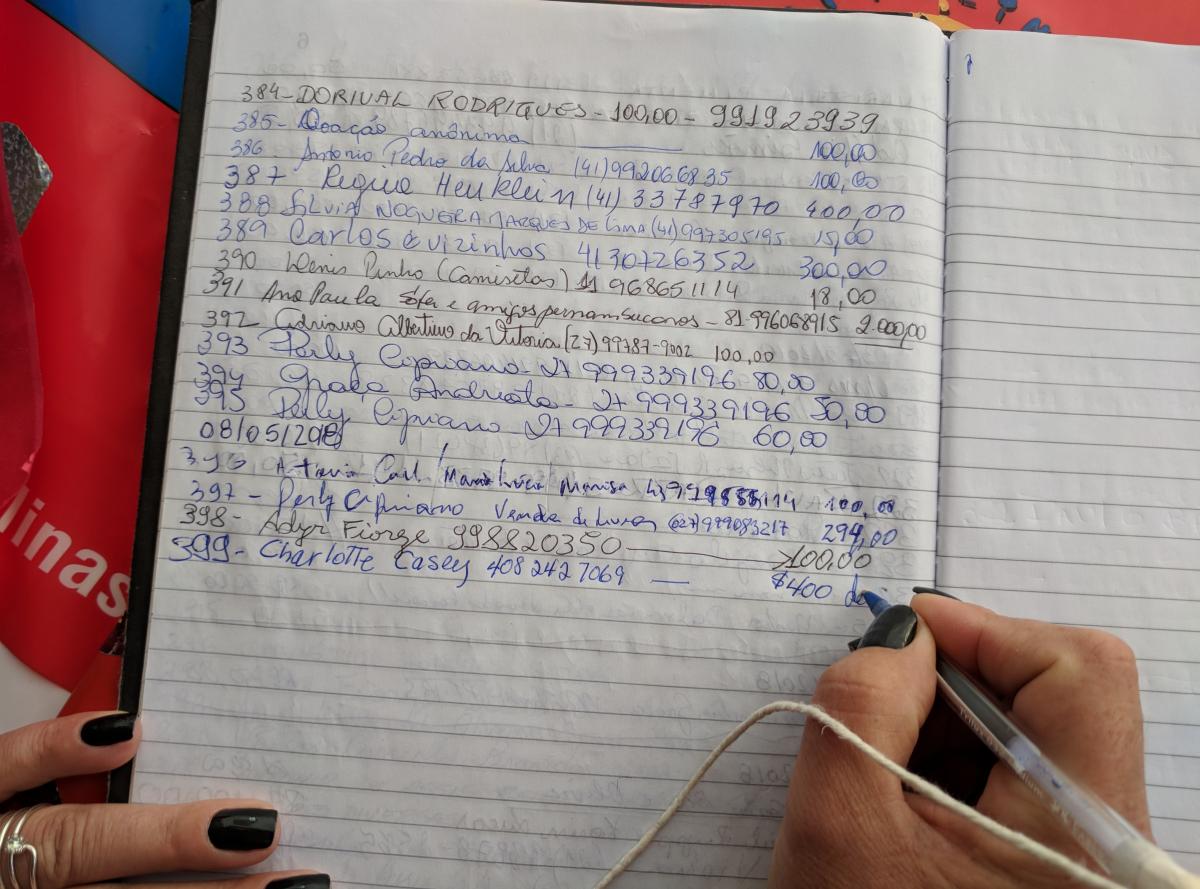 384 - DORIVAL RODRIGUES - 100,00 - 991923939
385 - Doação anônima 100,00
386 Antonio Pedro da Silva (41) 992066835 100,00
387 Regina Henklein (41) 33787970 400,00
388 SILVIA NOGUEIRA MARQUES DE LIMA (41) 997305195 15,00
389 Carlos e vizinhos 4130726352 300,00
390 Denis Pinho (Camisetas) 11 968651114 18,00
391 Ana Paula e amigos pernambucanos - 81-996068915 2.000,00
392 Adriano Albertino da Vitoria (27) 99787-9002 100,00
393 Perly Cipriano - 27 999339196 80,00
394 Graça Andreata - 27 999339196 50,00
395 Perly Cipriano 27 999339196 60,00
08/05/2018
396 Maria Lúcia Marisa 100,00
397 - Perly Cipriano Venda de Livros (27) 999083217 294,00
398 - Adyr Fiorge 998820350 100,00
399 - Charlotte Casey 4082427069 — $400 do
linas